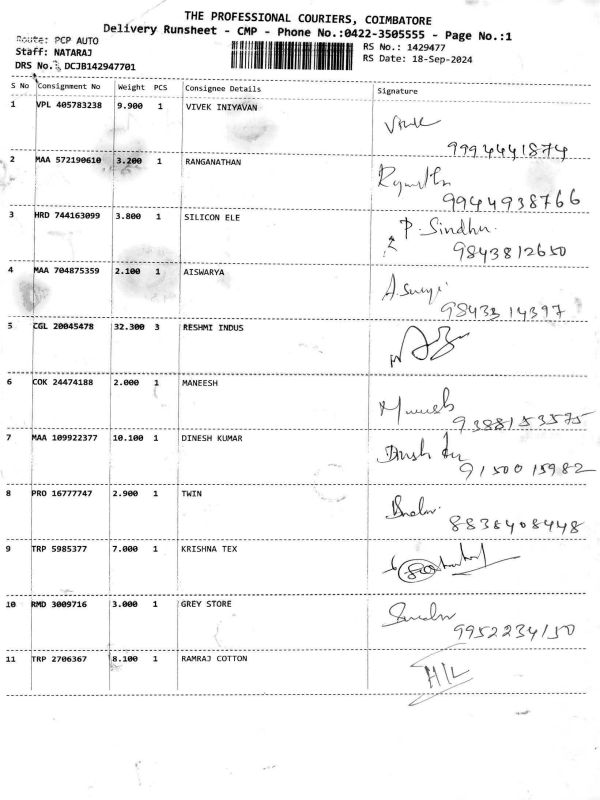 THE PROFESSIONAL COURIERS, COIMBATORE
Delivery Runsheet - CMP - Phone No.:0422-3505555 - Page No.:1
Route: PCP AUTO
RS No.: 1429477
Staff: NATARAJ
RS Date: 18-Sep-2024
DRS No.: DCJB142947701
S No Consignment No Weight PCS Consignee Details Signature
1 VPL 405783238 9.900 1 VIVEK INIYAVAN
9994441874
2 MAA 572190610 3.200 1 RANGANATHAN
9944938766
3 HRD 744163099 3.800 1 SILICON ELE P. Sindhu
9843812650
4 MAA 704875359 2.100 1 AISWARYA
9843314397
5 CGL 20045478 32.300 3 RESHMI INDUS
6 COK 24474188 2.000 1 MANEESH
9388153575
7 MAA 109922377 10.100 1 DINESH KUMAR
9150015982
8 PRO 16777747 2.900 1 TWIN
8838408448
9 TRP 5985377 7.000 1 KRISHNA TEX
10 RMD 3009716 3.000 1 GREY STORE
9952234150
11 TRP 2706367 8.100 1 RAMRAJ COTTON